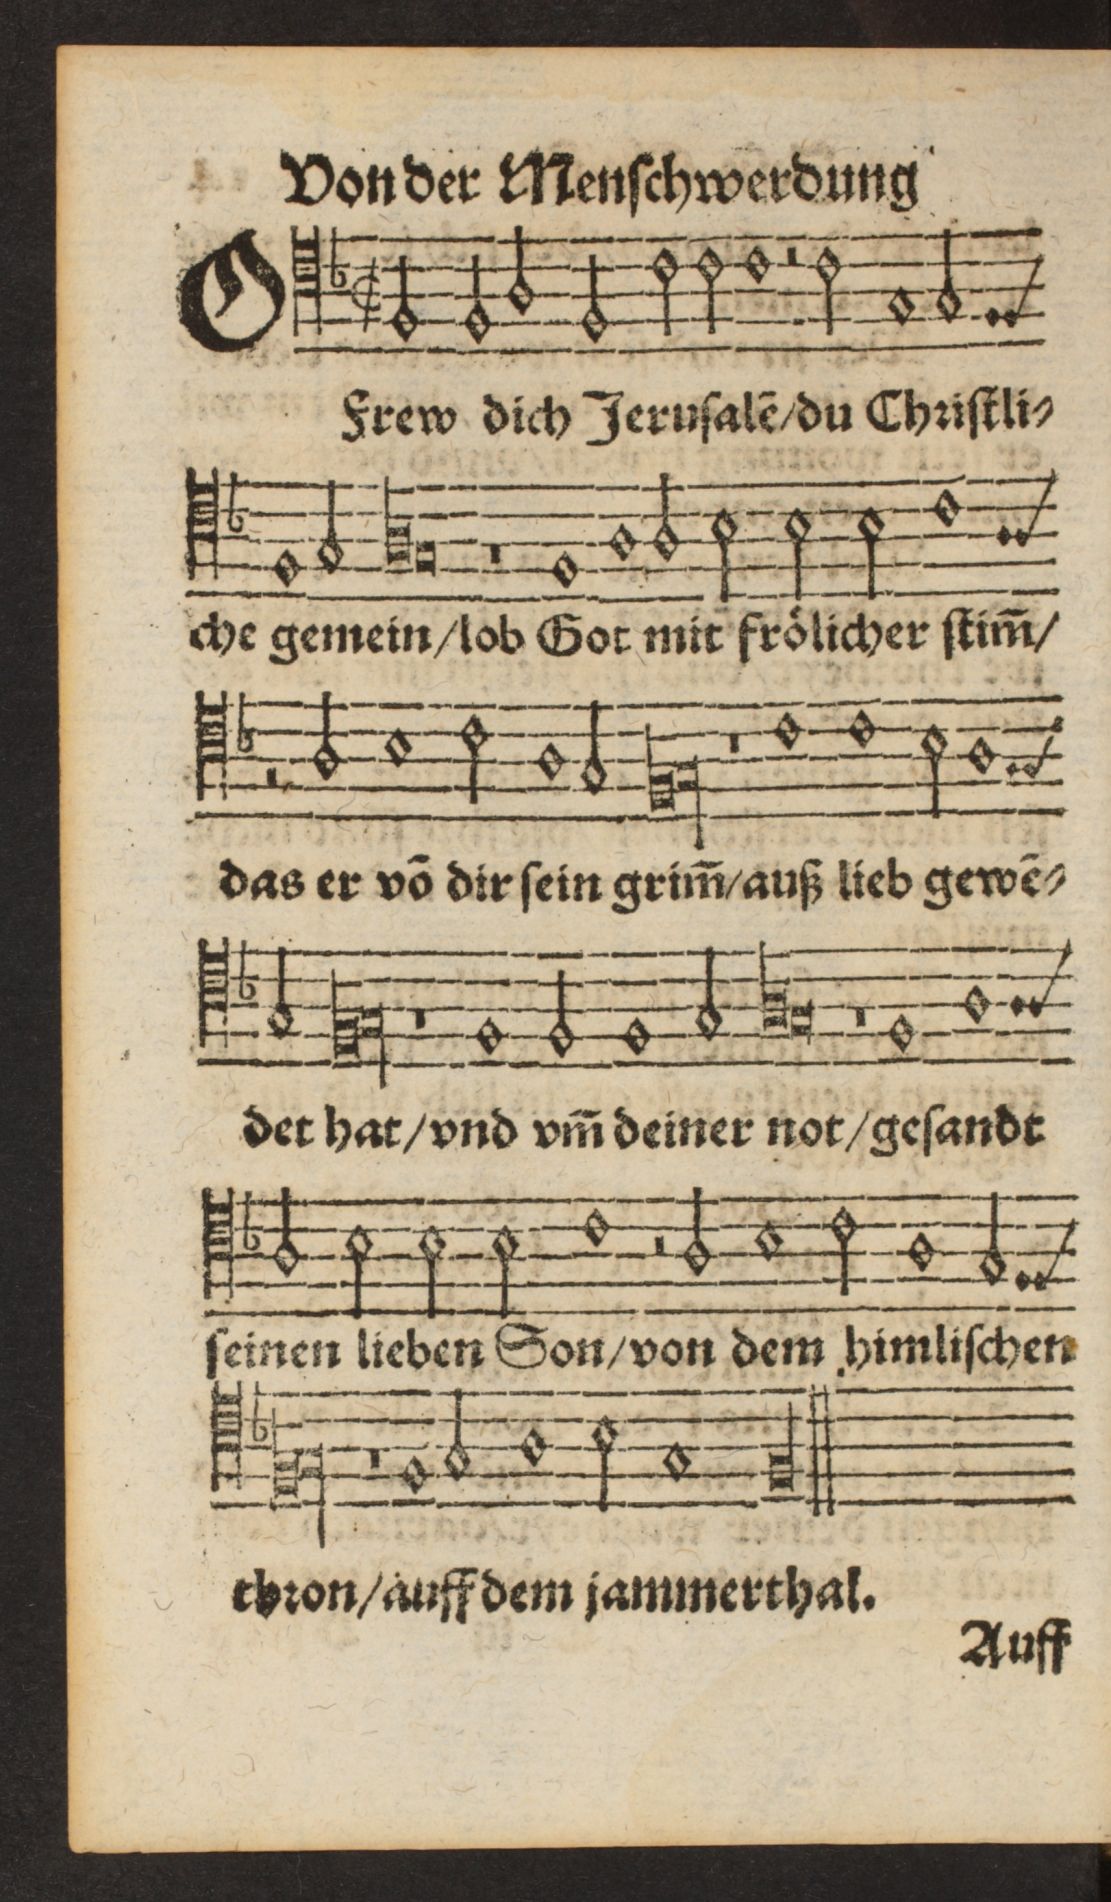 Von der Menschwerdung
O
Frew dich Jerusalē/du Christli⸗
che gemein/lob Got mit frölicher stim̄/
das er vō dir sein grim̄/auß lieb gewē⸗
det hat/vnd vm̄ deiner not/gesandt
seinen lieben Son/von dem himlischen
thron/auff dem jammerthal.
Auff